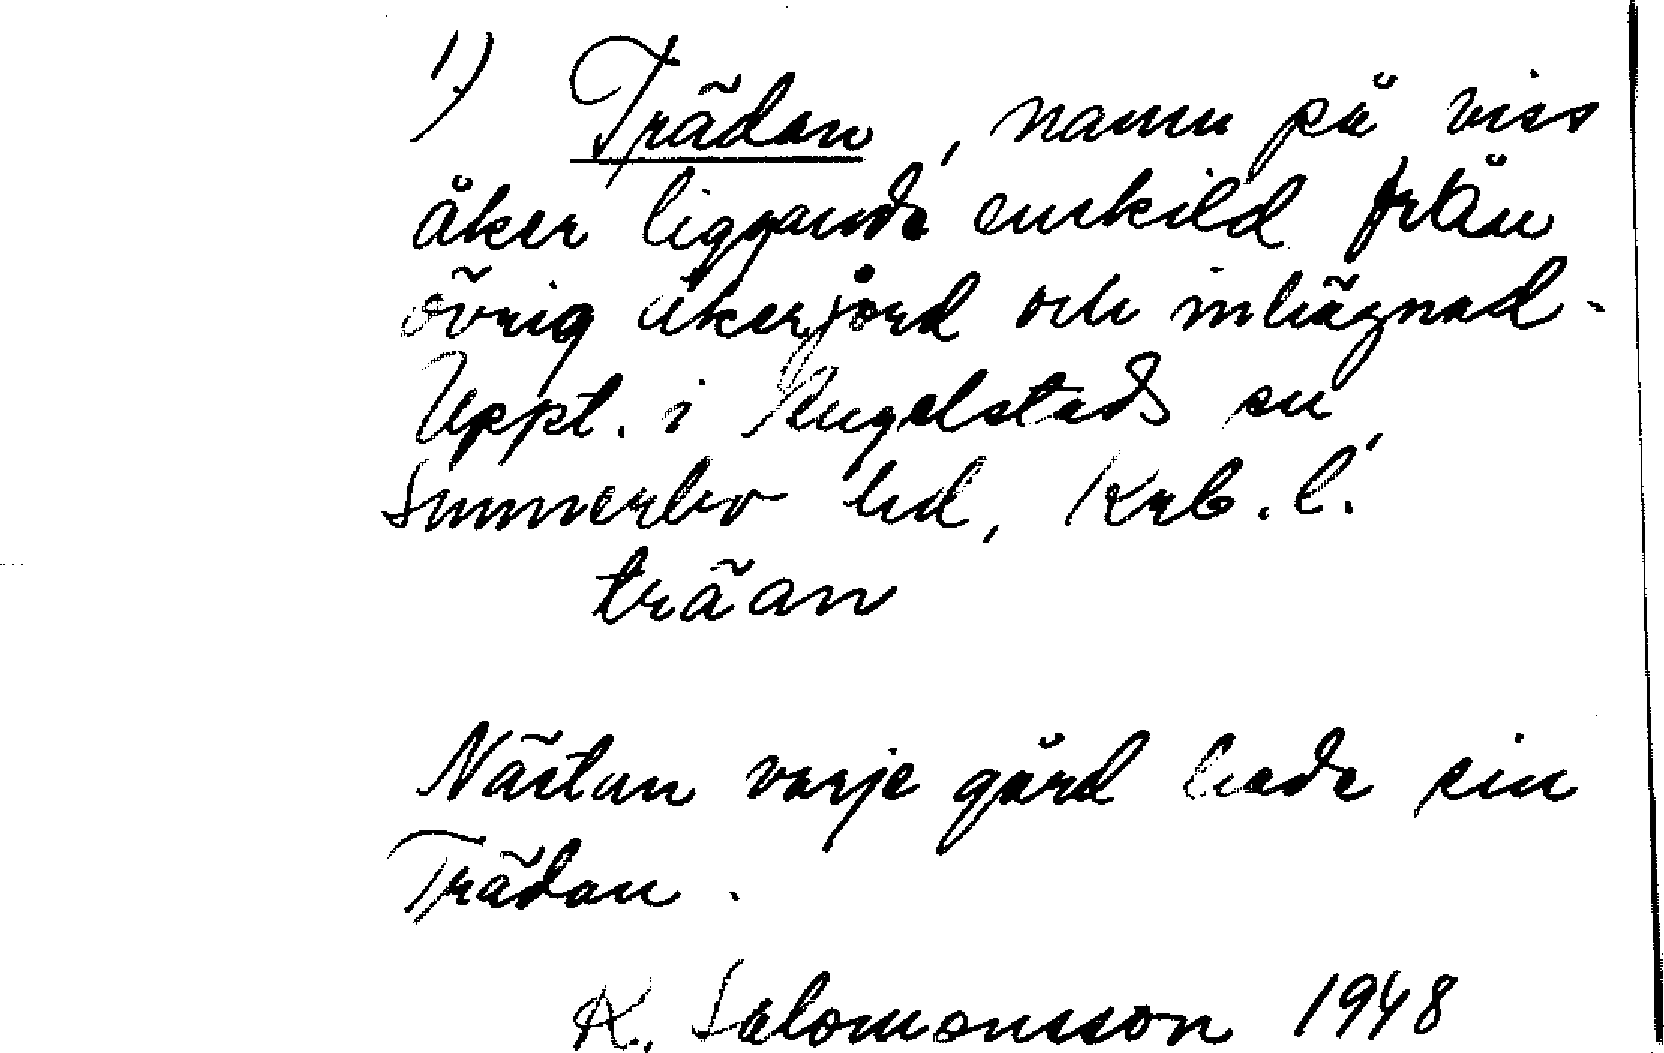 1) Trädan, namn på viss
åker liggande enskild från
övrig åkerjord och inhägnad.
Uppt. i Ängelstads sn,
Sunnerbo hd, Krb. l.
träan
Nästan varje gård hade sin
Trädan.
K. Salomonsson 1948